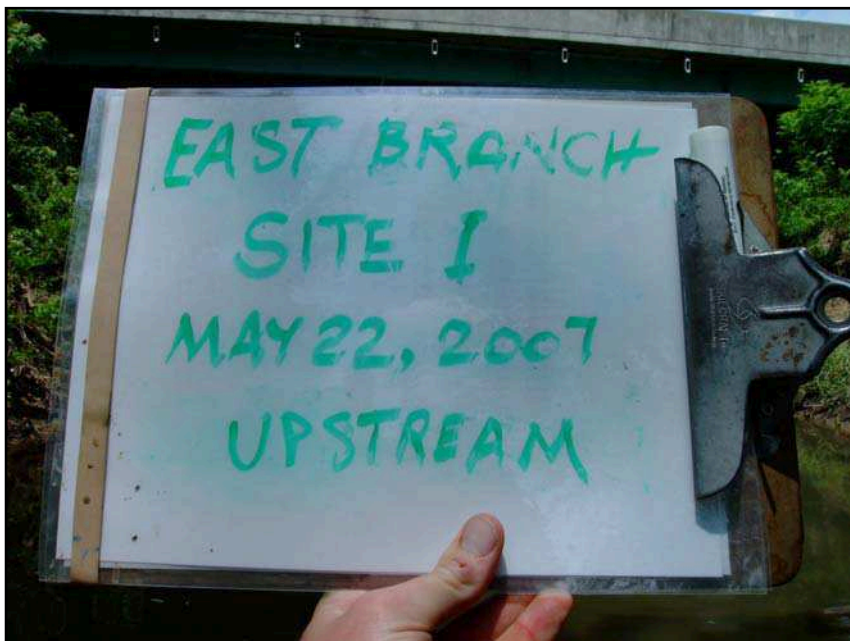 EAST BRANCH
SITE I
MAY 22, 2007
UPSTREAM